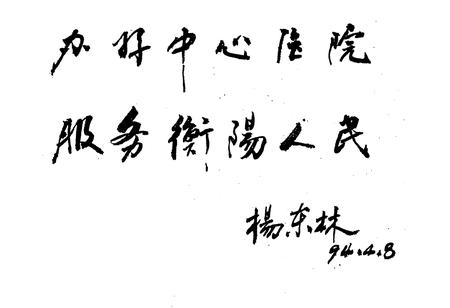 办好中心医院
服务衡陽人民
楊东林
94.4.8